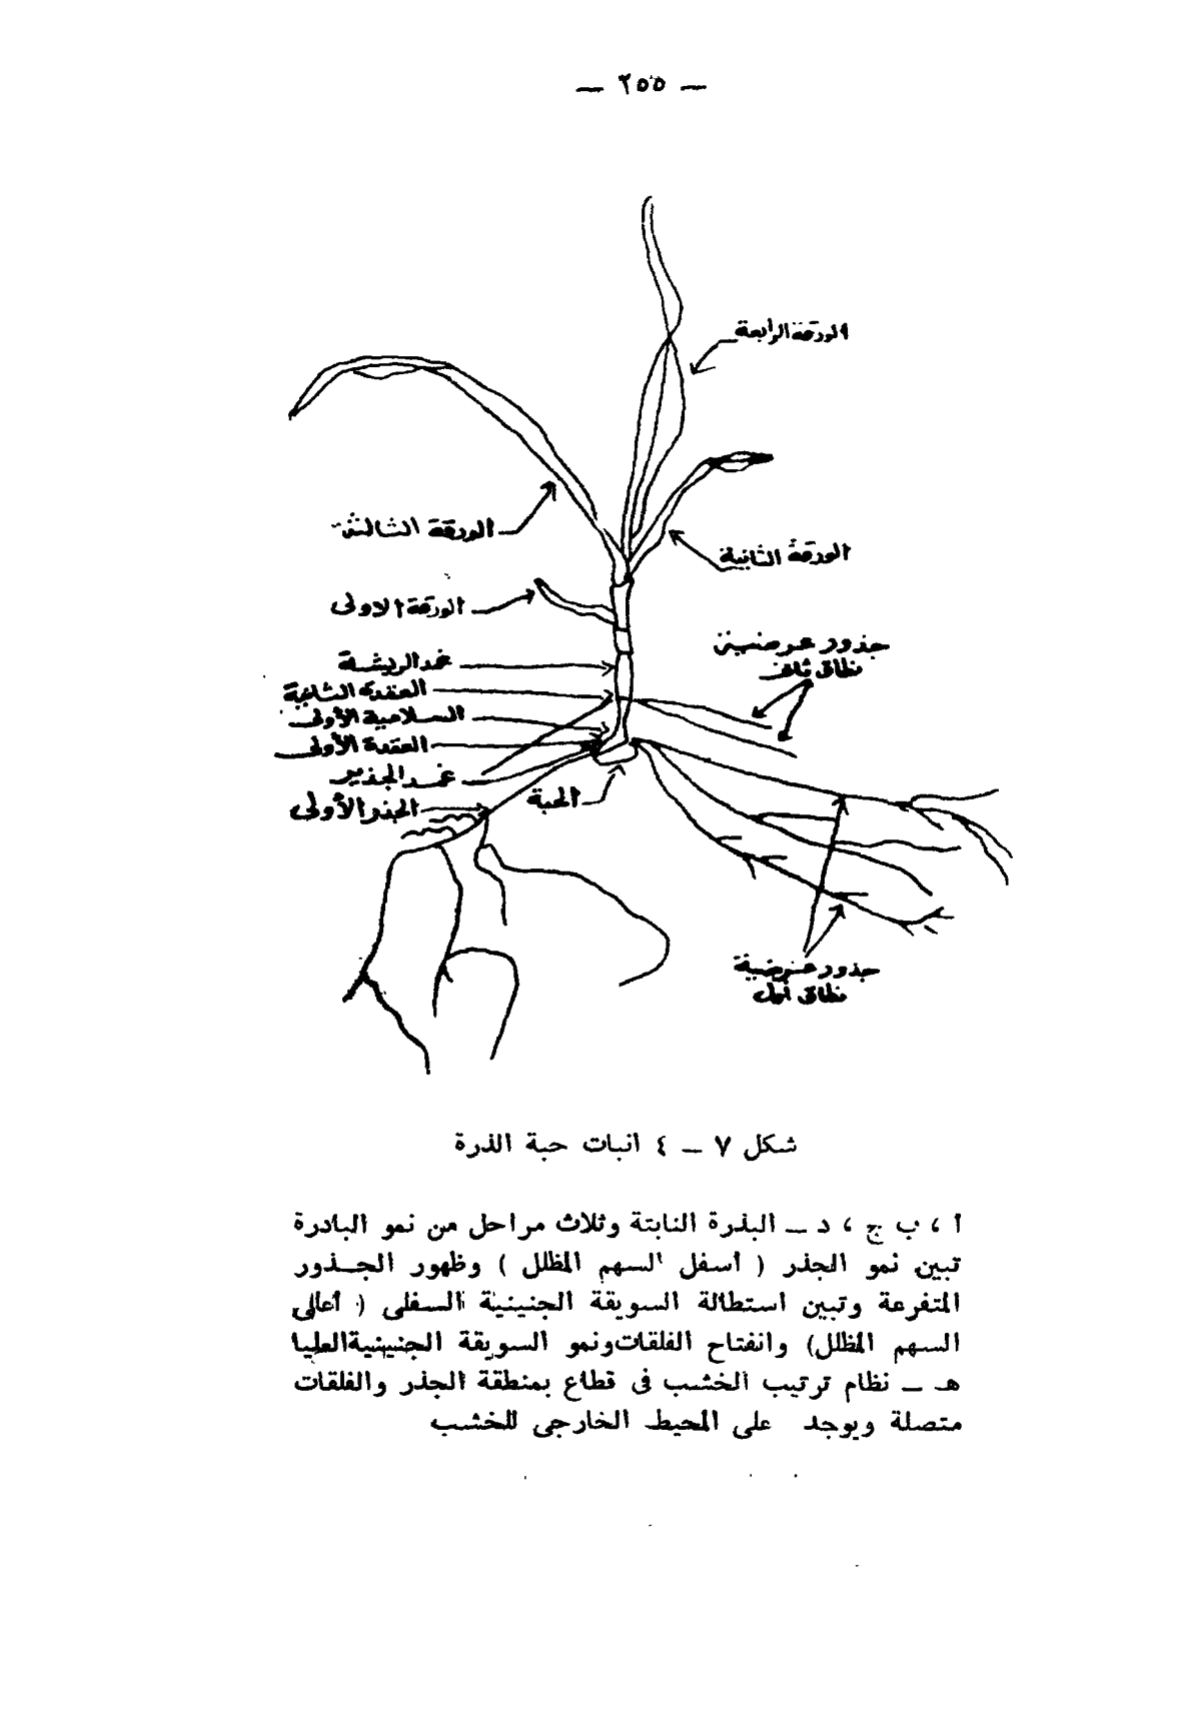 — ٢٥٥ —
الورقة الرابعة
الورقة الثالثة
الورقة الثانية
الورقة الاولى
جذور عرضية
نطاق ثان
غمد الريشة
العقدة الثانية
السلامية الأولى
العقدة الأولى
غمد الجذير
الجذر الأولى
الحبة
جذور عرضية
نطاق أول
شكل ٧ – ٤ انبات حبة الذرة
أ ، ب ج ، د – البذرة النابتة وثلاث مراحل من نمو البادرة
تبين نمو الجذر ( أسفل السهم المظلل ) وظهور الجذور
المتفرعة وتبين استطالة السويقة الجنينية السفلى ( أعالى
السهم المظلل) وانفتاح الفلقات ونمو السويقة الجنينية العليا
هـ – نظام ترتيب الخشب فى قطاع بمنطقة الجذر والفلقات
متصلة ويوجد على المحيط الخارجى للخشب